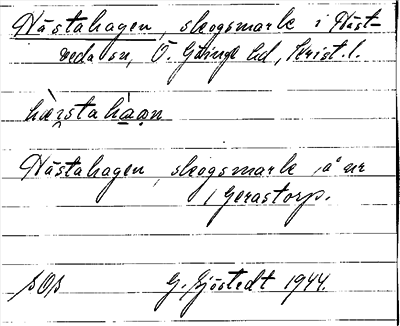 Hästahagen, skogsmark i Häst-
veda sn, Ö. Göinge hd, Krist. l.
Hästahagen, skogsmark, å nr
1 Gerastorp.
SOS G. Sjöstedt 1944.